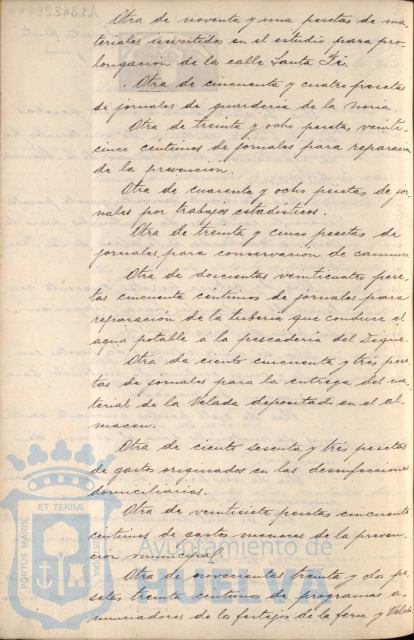 Otra de noventa y una pesetas de ma-
teriales invertidos en el estudio para pro-
longación de la calle Santa Fé.
Otra de cincuenta y cuatro pesetas
de jornales de guardería de la noria.
Otra de treinta y ocho pesetas veinti-
cinco centimos de jornales para reparación
de la prevención.
Otra de cuarenta y ocho pesetas de jor-
nales por trabajos estadísticos.
Otra de treinta y cinco pesetas de
jornales para conservación de caminos
Otra de doscientas veinticuatro pese-
tas cincuenta céntimos de jornales para
reparación de la tubería que conduce el
agua potable a la pescadería del Dique.
Otra de ciento cincuenta y tres pese-
tas de jornales para la entrega del ma-
terial de la Velada depositado en el al-
macen.
Otra de ciento sesenta y tres pesetas
de gastos originados en las desinfecciones
domiciliarias.
Otra de veintisiete pesetas cincuenta
centimos de gastos menores de la preven-
cion municipal.
Otra de novecientas treinta y dos pe-
setas treinta centimos de programas a-
nunciadores de los festejos de la feria y Velada
PORTUS MARIS
ET TERRÆ
Ayuntamiento de
HUELVA